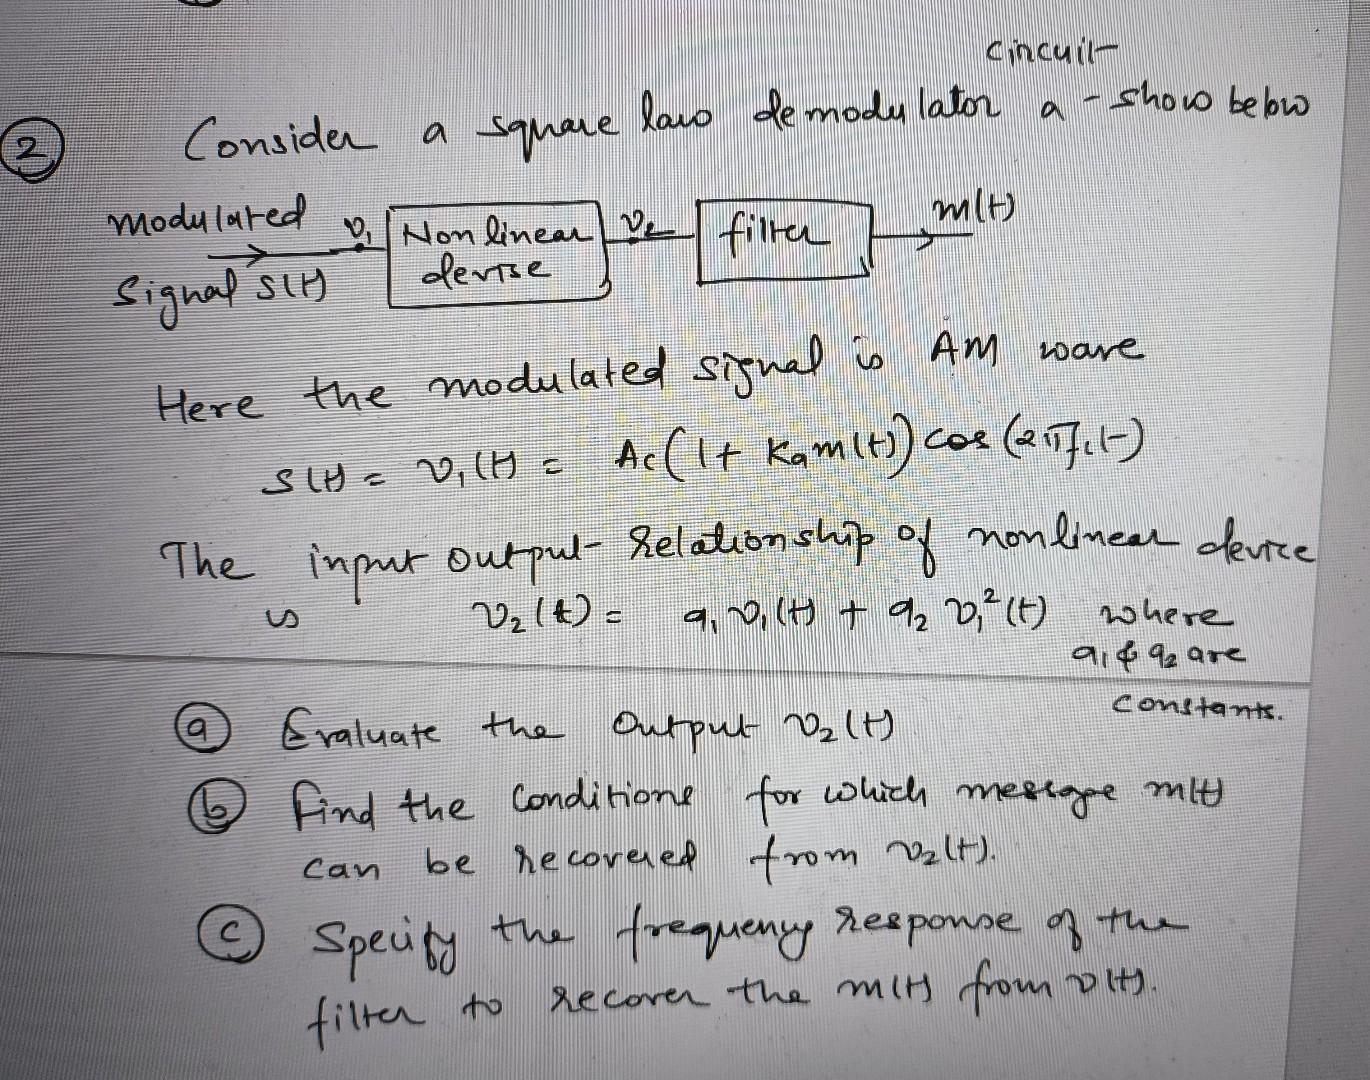 circuit
② Consider a square law demodulator a - show below
modulated v₁ Nonlinear v₂ filter m(t)
signal s(t) device
Here the modulated signal is AM wave
s(t) = v₁(t) = Ac(1 + Kam(t)) cos(2πfct)
The input output relationship of nonlinear device
is v₂(t) = a₁v₁(t) + a₂v₁²(t) where
a₁ & a₂ are
constants.
ⓐ Evaluate the output v₂(t)
ⓑ find the conditions for which message m(t)
can be recovered from v₂(t).
ⓒ specify the frequency response of the
filter to recover the m(t) from v(t).